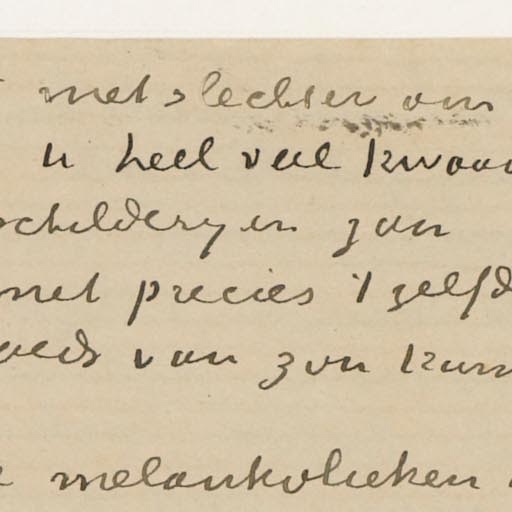 met slechter om
u heel veel kwaad
schilderyen zyn
met precies 't zelfd
van zyn kun
melankolieken